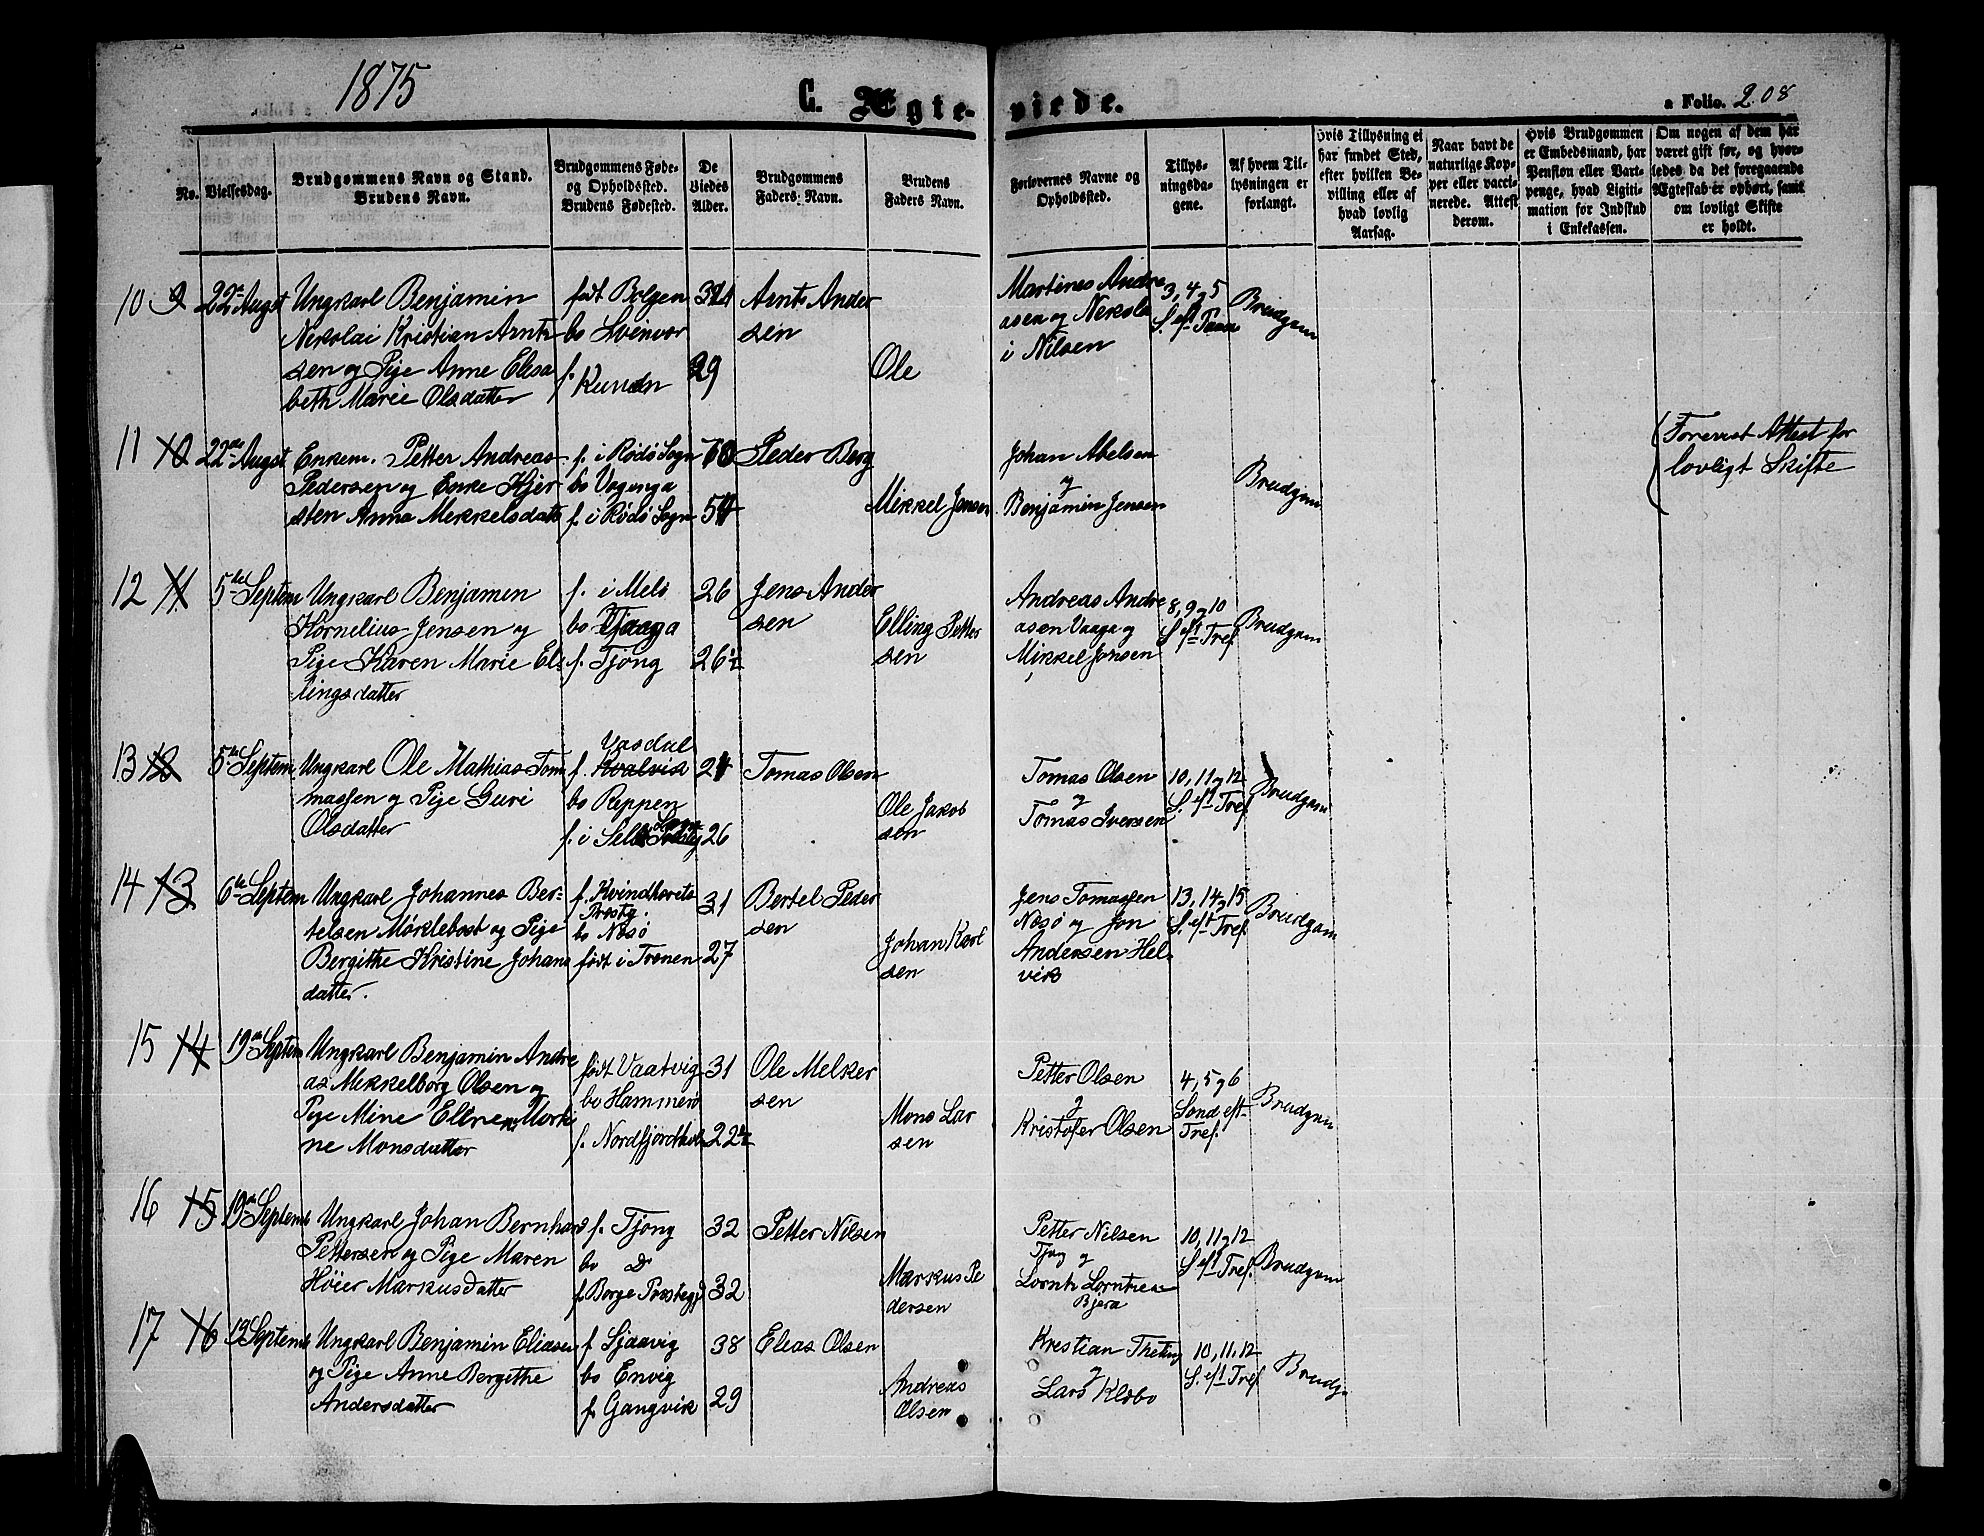 1875
C. Ægte-
viede.
a Folio. 208
No.
Vielsesdag.
Brudgommens Navn og Stand.
Brudens Navn.
Brudgommens Føde-
og Opholdssted.
Brudens Fødested.
De
Viedes
Alder.
Brudgommens
Faders Navn.
Brudens
Faders Navn.
Forlovernes Navne og
Opholdssted.
Tillys-
ningsda-
gene.
Af hvem Til-
lysningen er
forlangt.
Hvis Tillysning ei
har fundet Sted,
efter hvilken Be-
villing eller af
hvad lovlig
Aarsag.
Naar havt de
naturlige Kop-
per eller vacci-
nerede. Attest
derom.
Hvis Brudgommen
er Embedsmand, har
Pension eller Vart-
penge, hvad Ligiti-
mation for Indskud
i Enkekassen.
Om nogen af dem har
været gift før, og hvor-
ledes da det foregaaende
Ægteskab er ophørt, samt
om lovligt Skifte
er holdt.
10 9 22de Augst
Ungkarl Benjamin
Nekolai Kristian Arnt
sen og Pige Anne Elisa
beth Marie Olsdatter
født Bolgen
bo Svinvær
f.
29
Arnt Ander
sen
Ole
Martines Andre
asen og Nekola
i Nilsen
3, 4 og 5
S. eft
Brudgom
11 10 22de Augst
Enkem. Petter Andreas
Pedersen og Enke Kjer
sten Anna Mekkelsdatt
f. i Rødø Sogn
bo Vaganga
f. i Rødø Sogn
70
Peder Berg
Mikkel Jensen
Johan Abelsen
og
Benjamin Jensen
Brudgom
Forevist Attest for
lovligt Skifte
12 11 5te Septem
Ungkarl Benjamin
Kornelius Jensen og
Pige Karen Marie El
lingsdatter
f. i Melø
bo Vaaga
f. Tjong
26
26½
Jens Ander
sen
Elling Petter
sen
Andreas Andre
asen Vaaga og
Mikkel Jensen
8, 9 og 10
S. eft Tref
Brudgom
13 12 5te Septem
Ungkarl Ole Mathias Tom
massen og Pige Guri
Olsdatter
Vasdal
f. Kvalvik
bo Reppen
f. i Selbo
24
26
Tomas Olsen
Ole Jakob
sen
Tomas Olsen
og
Tomas Iversen
10, 11 og 12
S. eft Tref
Brudgom
14 13 6te Septem
Ungkarl Johannes Ber-
telsen Mørklebost og Pige
Bergithe Kristine Johans
datter.
f. Kvindherets
Præstg.
bo Nesø
født i Trænen
31
27
Bertel Peder
sen
Johan Karl
sen
Jens Tomassen
Nesø og Jon
Andersen Hel
vik
13, 14 og 15
S. eft Tref
Brudgom
15 14 19de Septem
Ungkarl Benjamin Andre
as Mekkelborg Olsen og
Pige Mine Ellren Mork
ne Monsdatter
født Vaatvig
bo Hammerø
f. Nordfjordhol
31
22½
Ole Melker
sen
Mons Lar
sen
Petter Olsen
og
Kristofer Olsen
4, 5 og 6
Sond eft
Tref.
Brudgom
16 15 19de Septemb
Ungkarl Johan Bernhard
Pettersen og Pige Maren
Høier Markusdatter
f. Tjong
bo Do
f. Borge Præstegj
32
32
Petter Nilsen
Markus Pe
dersen
Petter Nilsen
Tjong og
Lornts Lorntsen
Bjæra
10, 11 og 12
S. eft Tref.
Brudgom
17 16 19 Septemb
Ungkarl Benjamin Eliasen
og Pige Anne Bergithe
Andersdatter
f. Sjaavig
bo Envig
f. Gangvik
38
29
Elias Olsen
Andreas
Olsen
Krestian
og
Lars Klæbo
10, 11, 12
S. eft Tref
Brudg